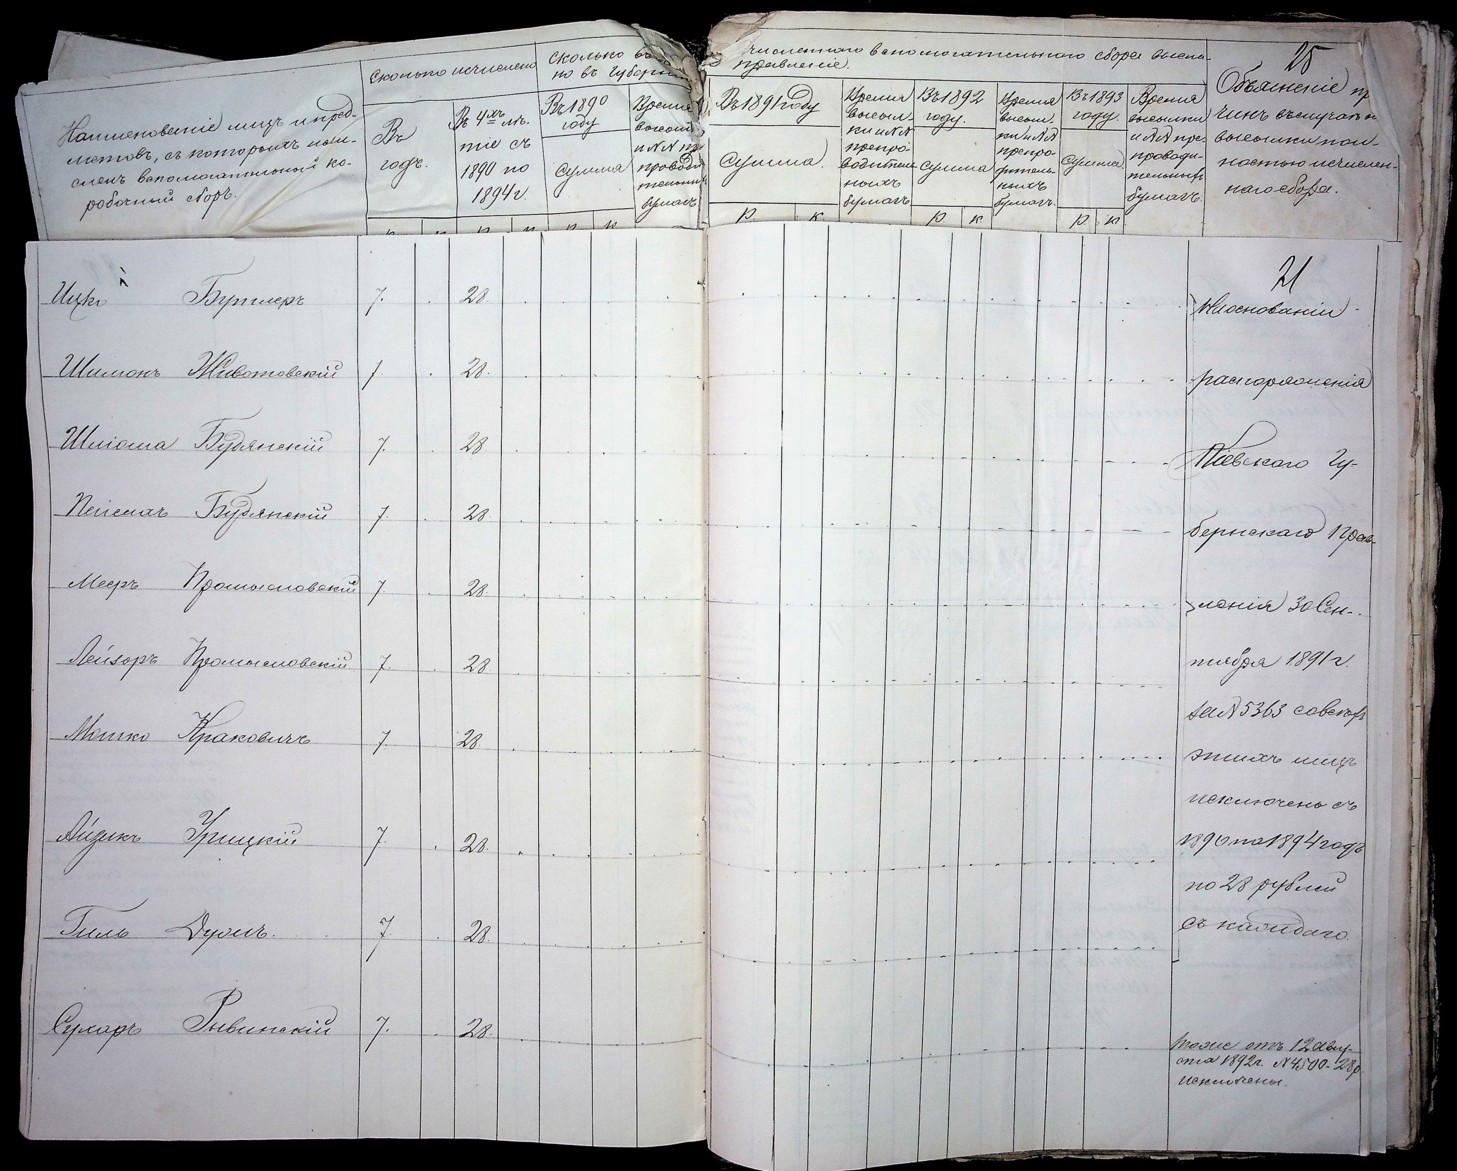 25
Наименованiе лицъ и пред-
метовъ, съ которыхъ исчи-
сленъ вспомогательный ко-
робочный сборъ.
Сколько исчислено
Въ
годъ.
Въ 4хъ лѣ-
тiе съ
1890 по
1894 г.
Сколько
но въ Губерн
Въ 1890
году
Сумма
Время
высылки
и №№
проводи
тельныхъ
бумагъ
численнаго вспомогательнаго сбора высла-
правленiе.
Въ 1891 году
Сумма.
Время
высыл-
ки и №№
препро-
водитель
ныхъ
бумагъ
Въ 1892
году.
Сумма
Время
высыл-
ки и №№
препро
ныхъ
бумагъ.
Въ 1893
году.
Сумма
Время
высылки
и №№ пре-
проводи-
тельныхъ
бумагъ.
Объясненiе пр
чинъ въ случаѣ н
высылки пол-
ностью исчислен-
наго сбора.
р к р к р к р к р к р к
21
Ицко Бутлеръ 7. 28
Шимонъ Животовскiй 7. 28.
Шлiома Будянскiй 7. 28
Пейсахъ Будянскiй 7. 28
Мееръ Промысловскiй 7. 28.
Лейзоръ Промысловскiй 7. 28
Мошко Краковичъ 7. 28
Айзикъ Урицкiй 7. 28.
Гиль Духинъ. 7. 28.
Сухаръ Рывинскiй 7. 28.
На основанiи
распоряженiя
Кiевскаго Гу-
бернскаго Прав-
ленiя 30 Сен-
тября 1891 г.
за № 5363 со всѣхъ
этихъ лицъ
исключены съ
1890 по 1894 годъ
по 28 рублей
съ каждаго.
тоже отъ 12 Авгу-
ста 1892 г. № 4500 - 28 р
исключены.